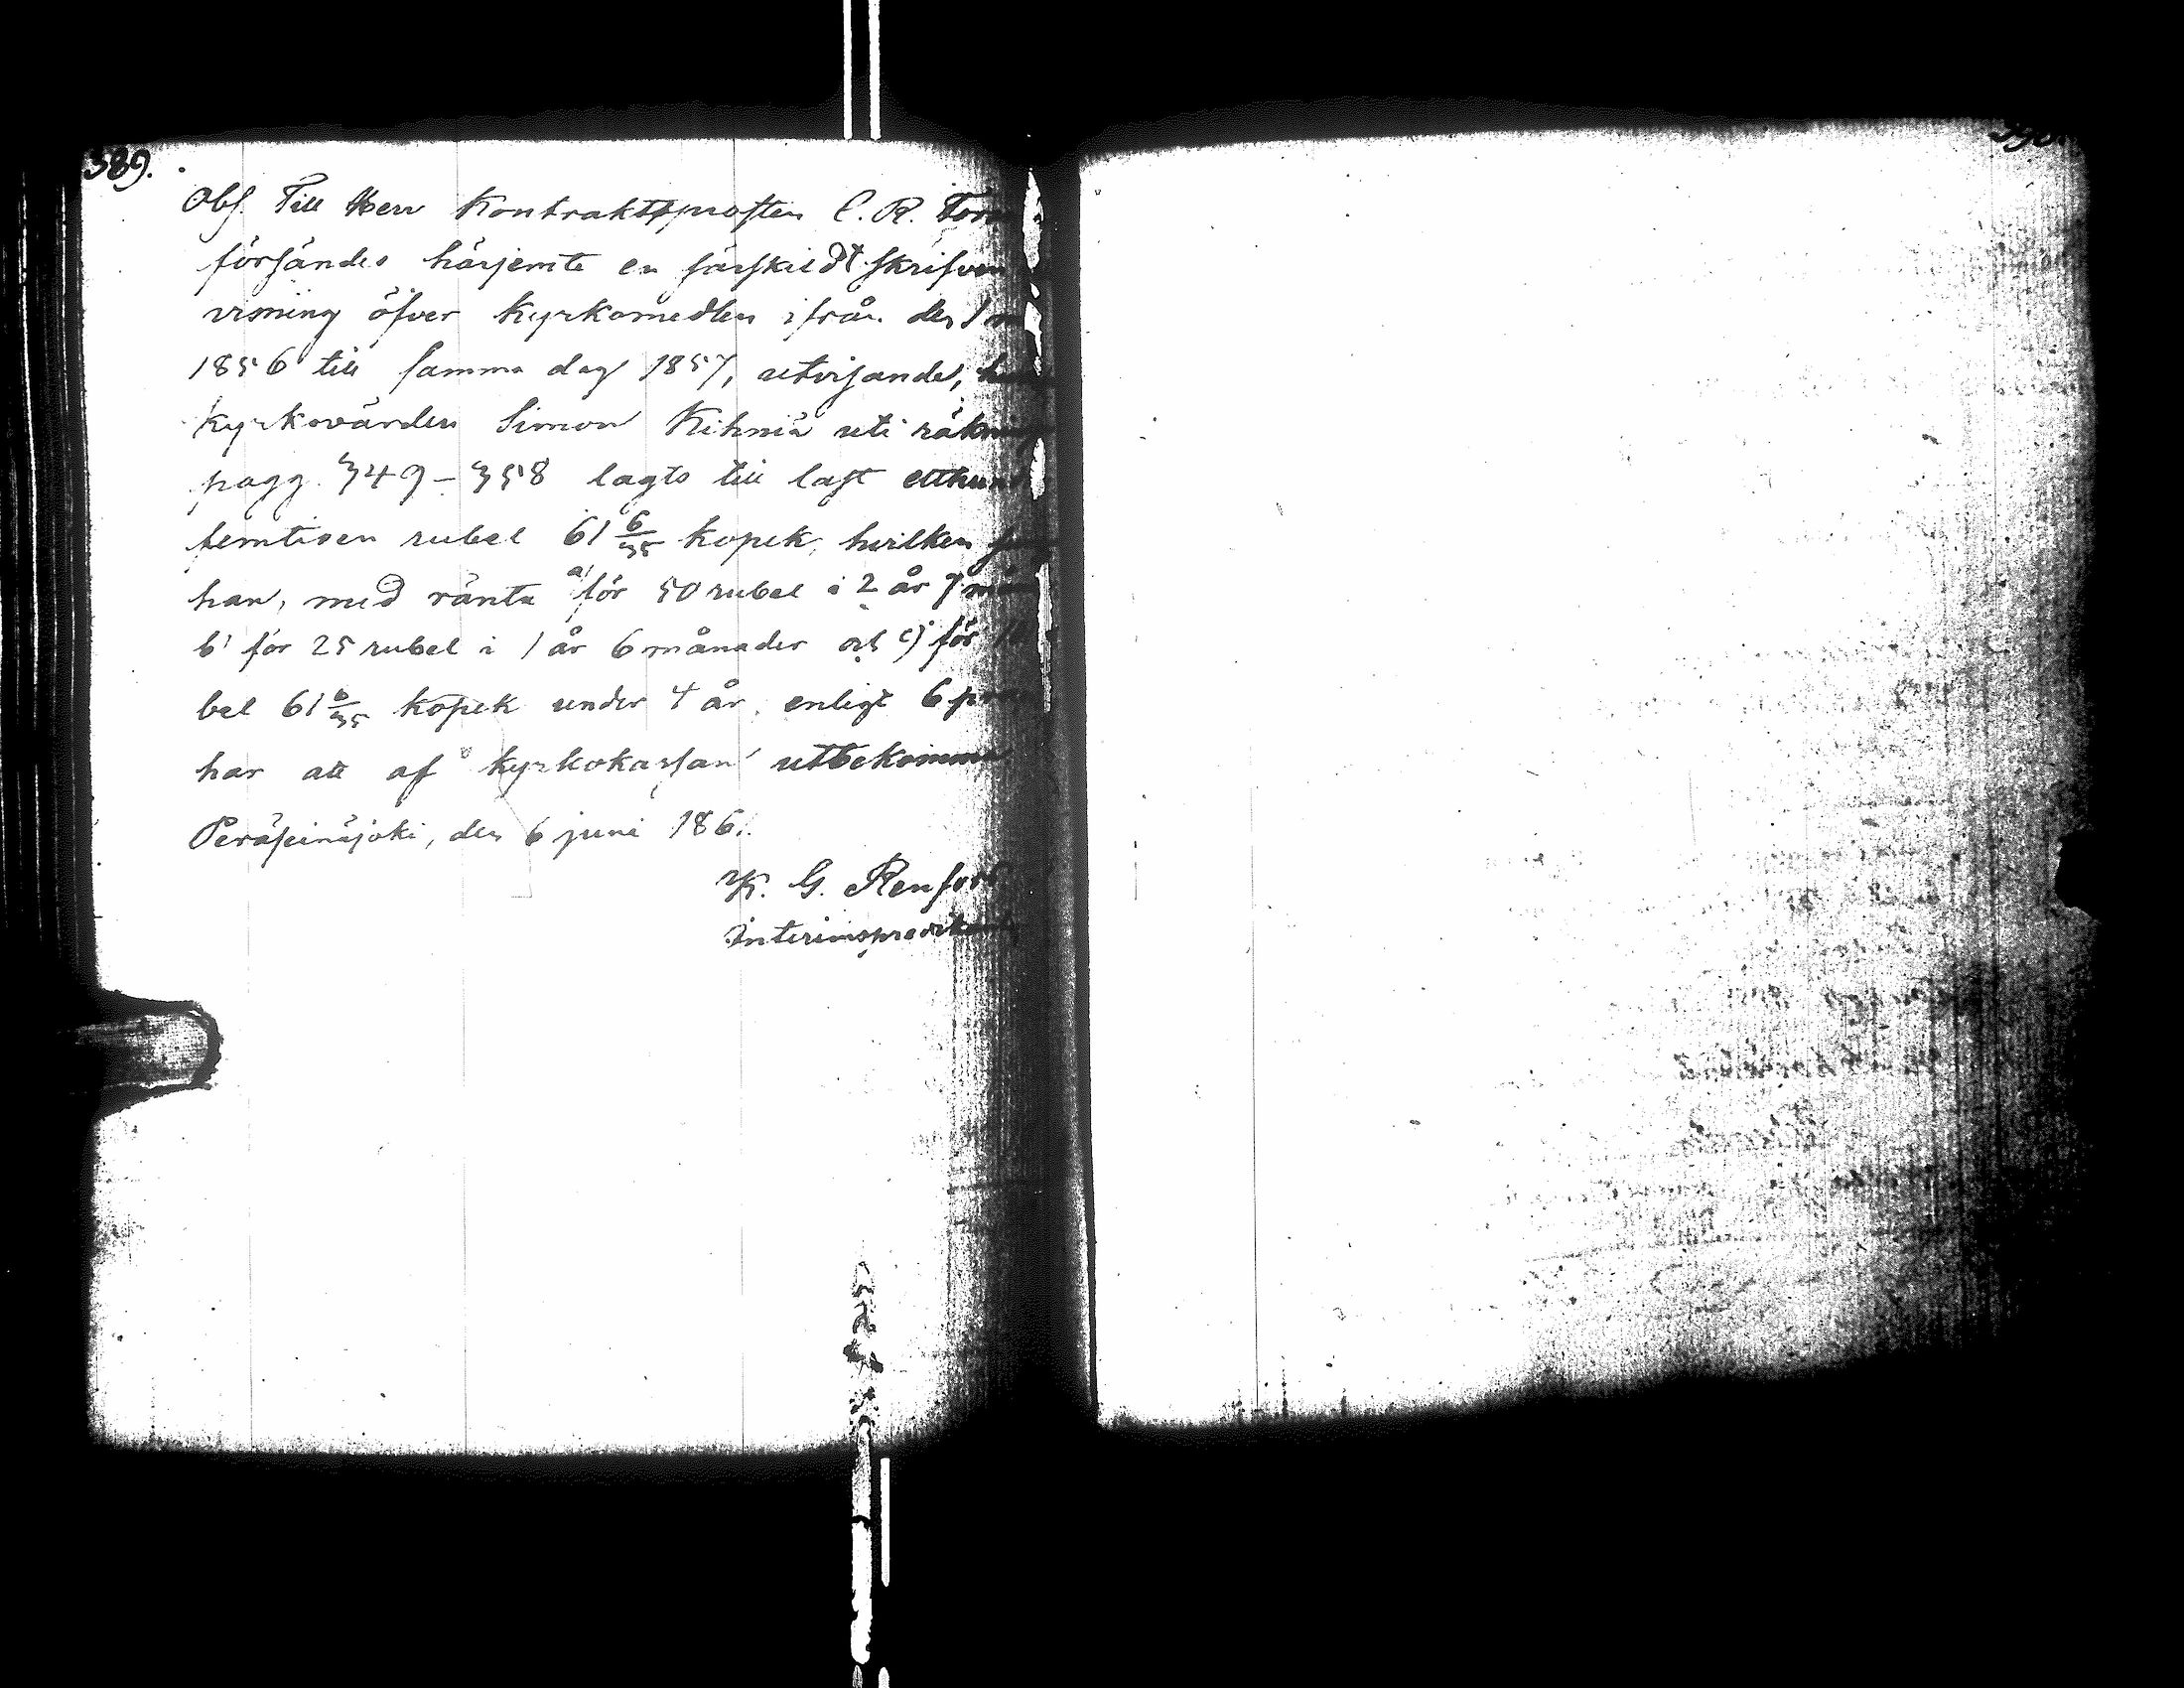 389.
Obs. Till Herr Kontraktsprosten C. R.
försändes härjemte en särskildt skrifven
visning öfver kyrkomedlen ifrån den 1
1856 till samma dag 1857, utvisande,
kyrkovärden Simon Kihniä uti räkning
pagg. 349–358 lagts till last etthund
femtioen rubel 61 6/35 kopek, hvilken
han, med ränta a) för 50 rubel i 2 år 7 må
b) för 25 rubel i 1 år 6 månader och c) för
bel 61 6/35 kopek under 4 år, enligt 6
har att af kyrkokassan utbekomma
Peräseinäjoki, den 6 juni 186
K. G. Renfors
Interimspredikant